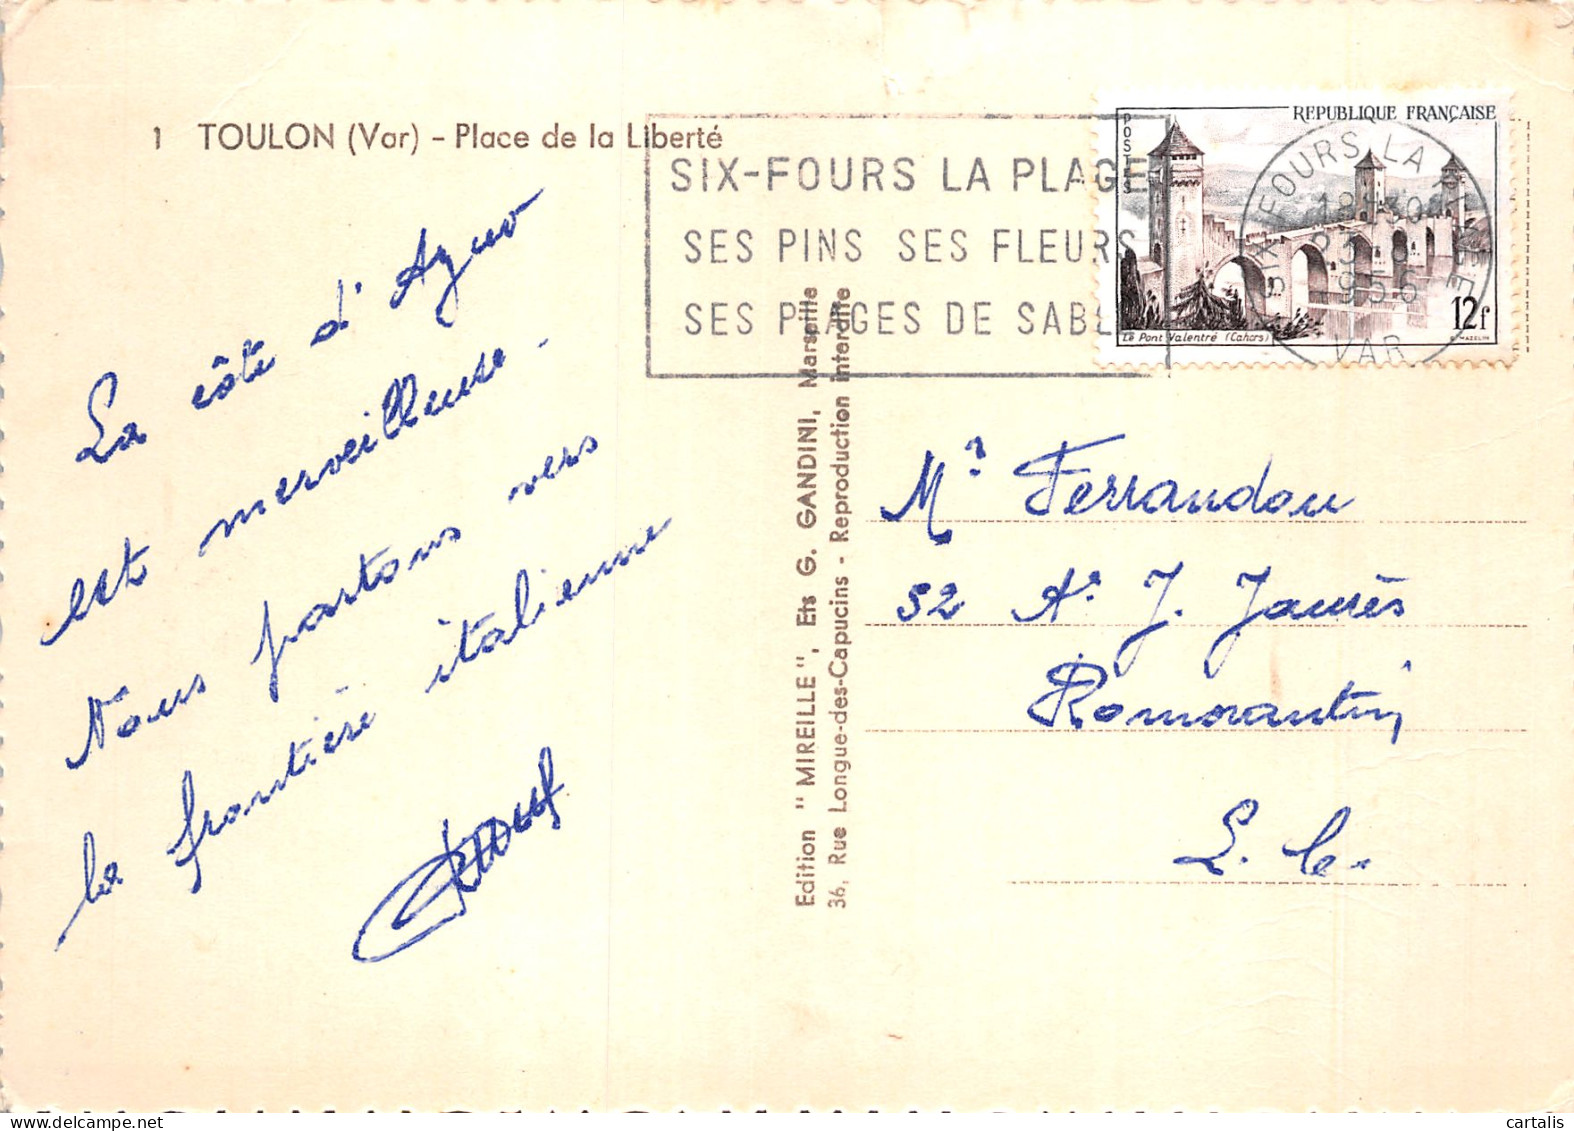 1 TOULON (Var) - Place de la Liberté
SIX-FOURS LA PLAGE
SES PINS SES FLEURS
SES PLAGES DE SABL
POSTES
REPUBLIQUE FRANÇAISE
12f
Le Pont Valentré (Cahors)
SIX FOURS LA PLAGE
1956
VAR
La côte d'Azur
est merveilleuse.
Nous partons vers
la frontière italienne
Edition "MIREILLE", Ets G. GANDINI, Marseille
36, Rue Longue-des-Capucins - Reproduction interdite
Mr Ferrandou
52 Ae J. Jaurès
Romorantin
L. Cr
cartalis